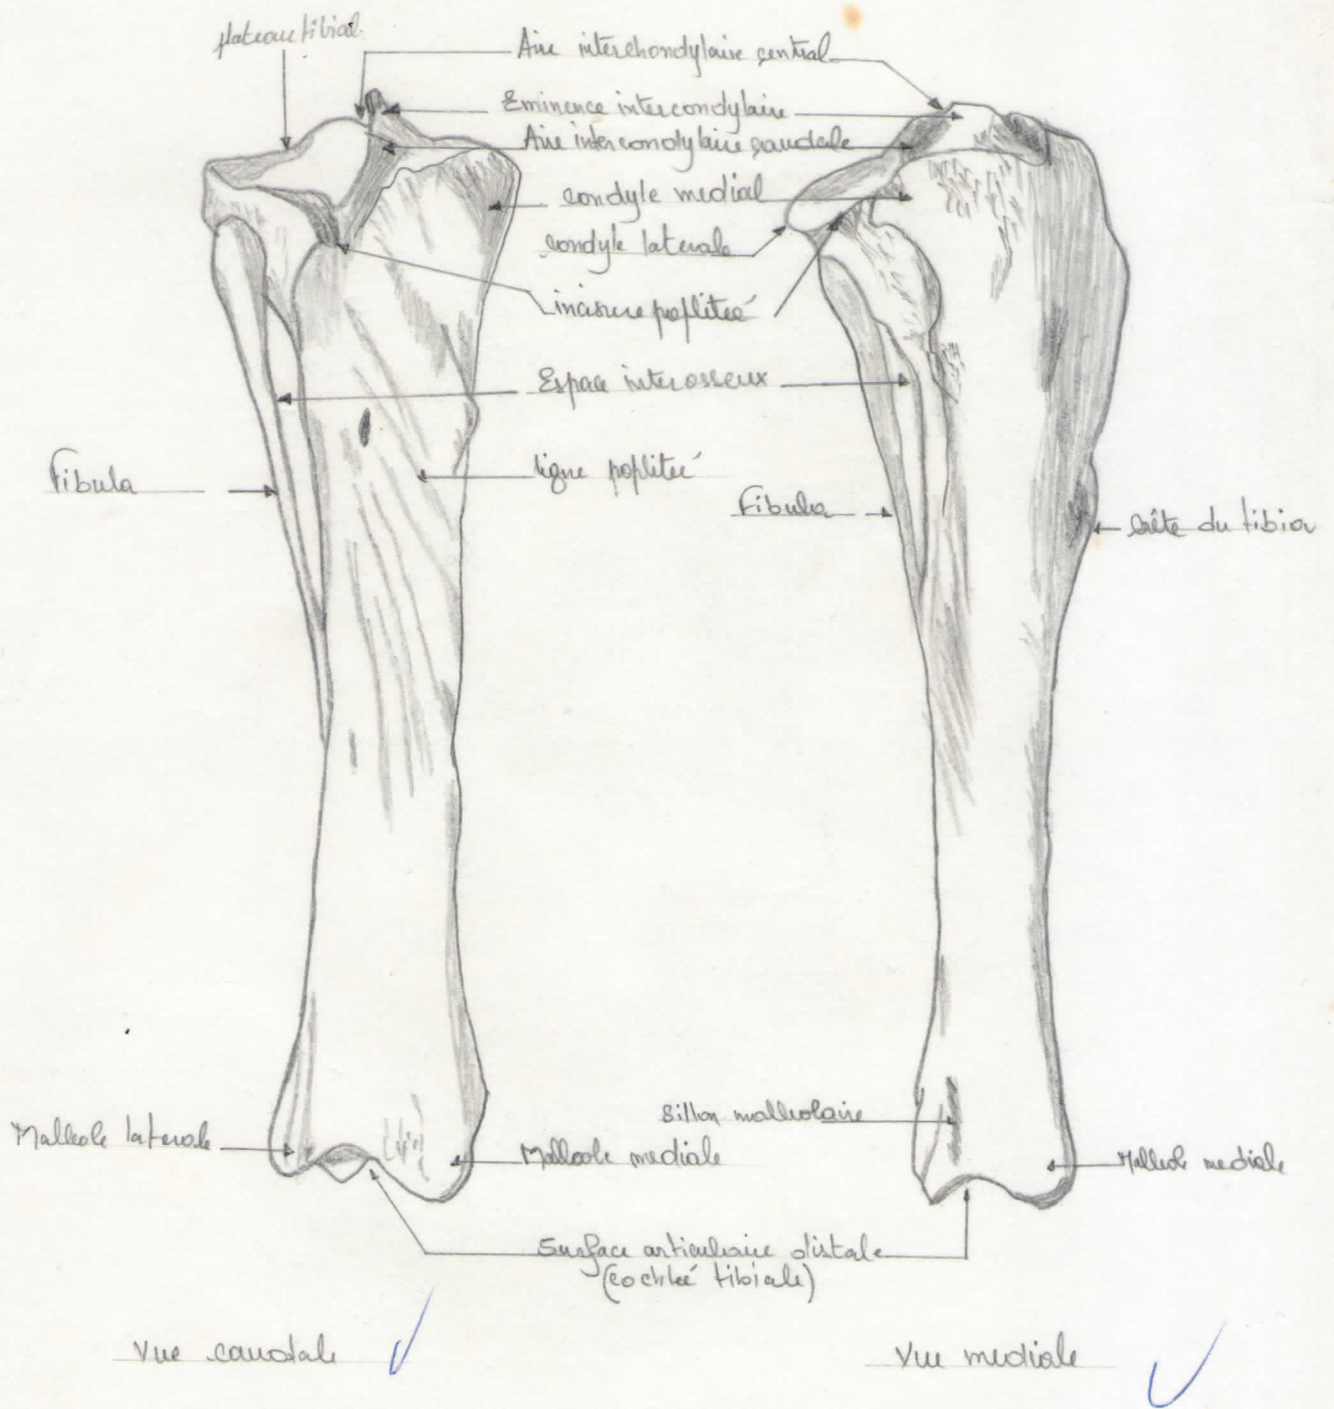 plateau tibial
Aire interchondylaire central
Eminence intercondylaire
Aire intercondylaire caudale
condyle medial
condyle laterale
incisure poplitée
Espace interosseux
ligne poplitée
Fibula
Fibula
Crête du tibia
Sillon malleolaire
Malleole laterale
Malleole mediale
Malleole mediale
Surface articulaire distale
(cochleé tibiale)
Vue caudale
Vue mediale